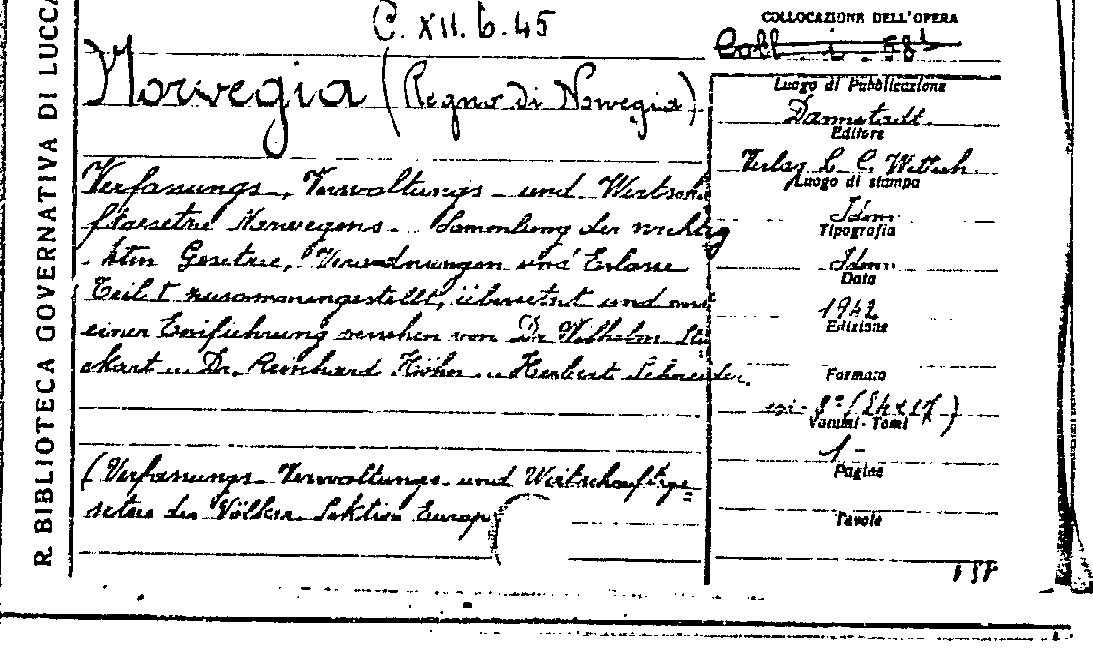 R. BIBLIOTECA GOVERNATIVA DI LUCCA
C. XII. 6. 45
Norvegia (Regno di Norvegia)
Verfassungs-, Verwaltungs- und Wirtscha
ftsgesetze Norwegens. Sammlung der wichtig
sten Gesetze, Verordnungen und Erlasse
Teil I zusammengestellt, übersetzt und mit
einer Einführung versehen von Dr. Wilhelm Stu
ckart - Dr. Reinhard Höhn - Herbert Schneider.
(Verfassungs- Verwaltungs- und Wirtschaftsge=
setze der Völker. Sektion Europ
COLLOCAZIONE DELL'OPERA
Coll
Luogo di Pubblicazione
Darmstadt
Editore
Verlag L. C. Wittich
Luogo di stampa
Idem
Tipografia
Idem
Data
1942
Edizione
Formato
8° (24x17)
Volumi - Tomi
1 -
Pagine
Tavole